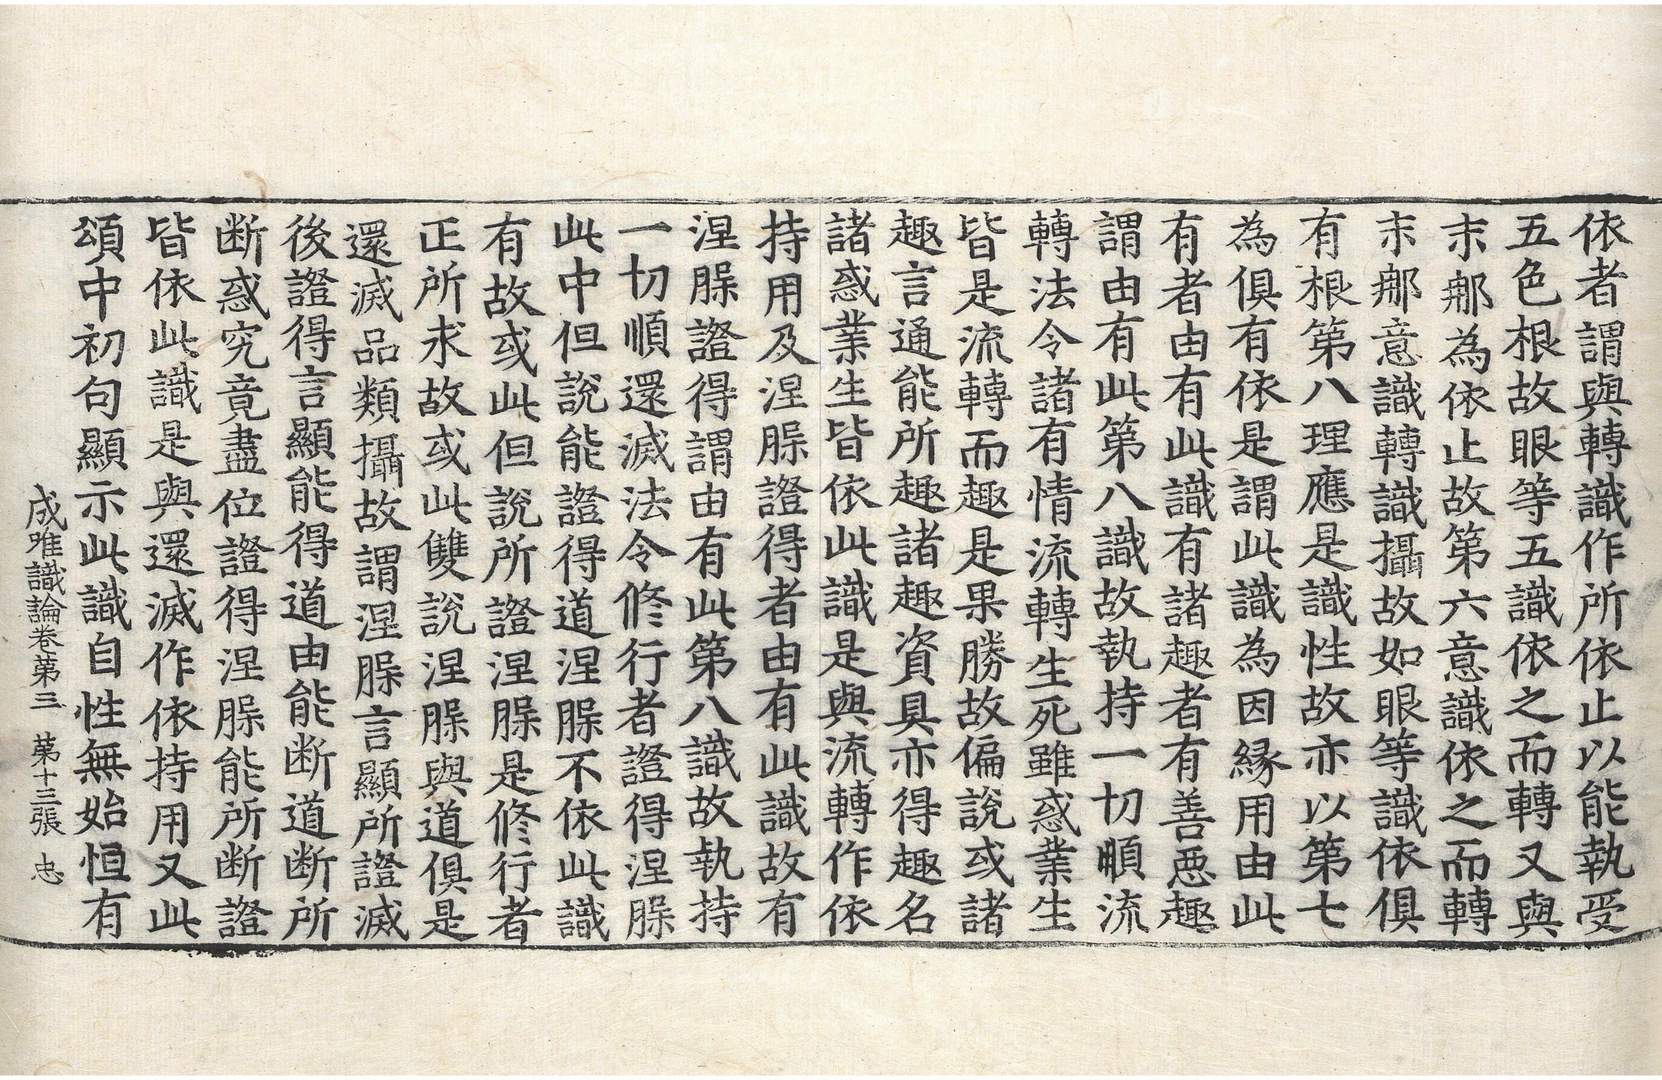 依者謂與轉識作所依止以能執受
五色根故眼等五識依之而轉又與
末那為依止故第六意識依之而轉
末那意識轉識攝故如眼等識依俱
有根第八理應是識性故亦以第七
為俱有依是謂此識為因緣用由此
有者由有此識有諸趣者有善惡趣
謂由有此第八識故執持一切順流
轉法令諸有情流轉生死雖惑業生
皆是流轉而趣是果勝故偏說或諸
趣言通能所趣諸趣資具亦得趣名
諸惑業生皆依此識是與流轉作依
持用及涅脲證得者由有此識故有
涅脲證得謂由有此第八識故執持
一切順還滅法令修行者證得涅脲
此中但說能證得道涅脲不依此識
有故或此但說所證涅脲是修行者
正所求故或此雙說涅脲與道俱是
還滅品類攝故謂涅脲言顯所證滅
後證得言顯能得道由能断道断所
断惑究竟盡位證得涅脲能所断證
皆依此識是與還滅作依持用又此
頌中初句顯示此識自性無始恒有
成唯識論卷第三 第十三張 忠